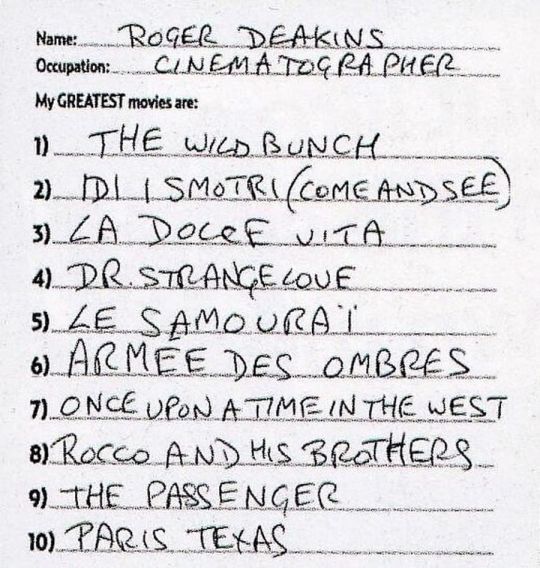 Name: ROGER DEAKINS
Occupation: CINEMATOGRAPHER
My GREATEST movies are:
1) THE WILD BUNCH
2) IDI I SMOTRI (COME AND SEE)
3) LA DOLCE VITA
4) DR. STRANGELOVE
5) LE SAMOURAÏ
6) ARMÉE DES OMBRES
7) ONCE UPON A TIME IN THE WEST
8) ROCCO AND HIS BROTHERS
9) THE PASSENGER
10) PARIS TEXAS